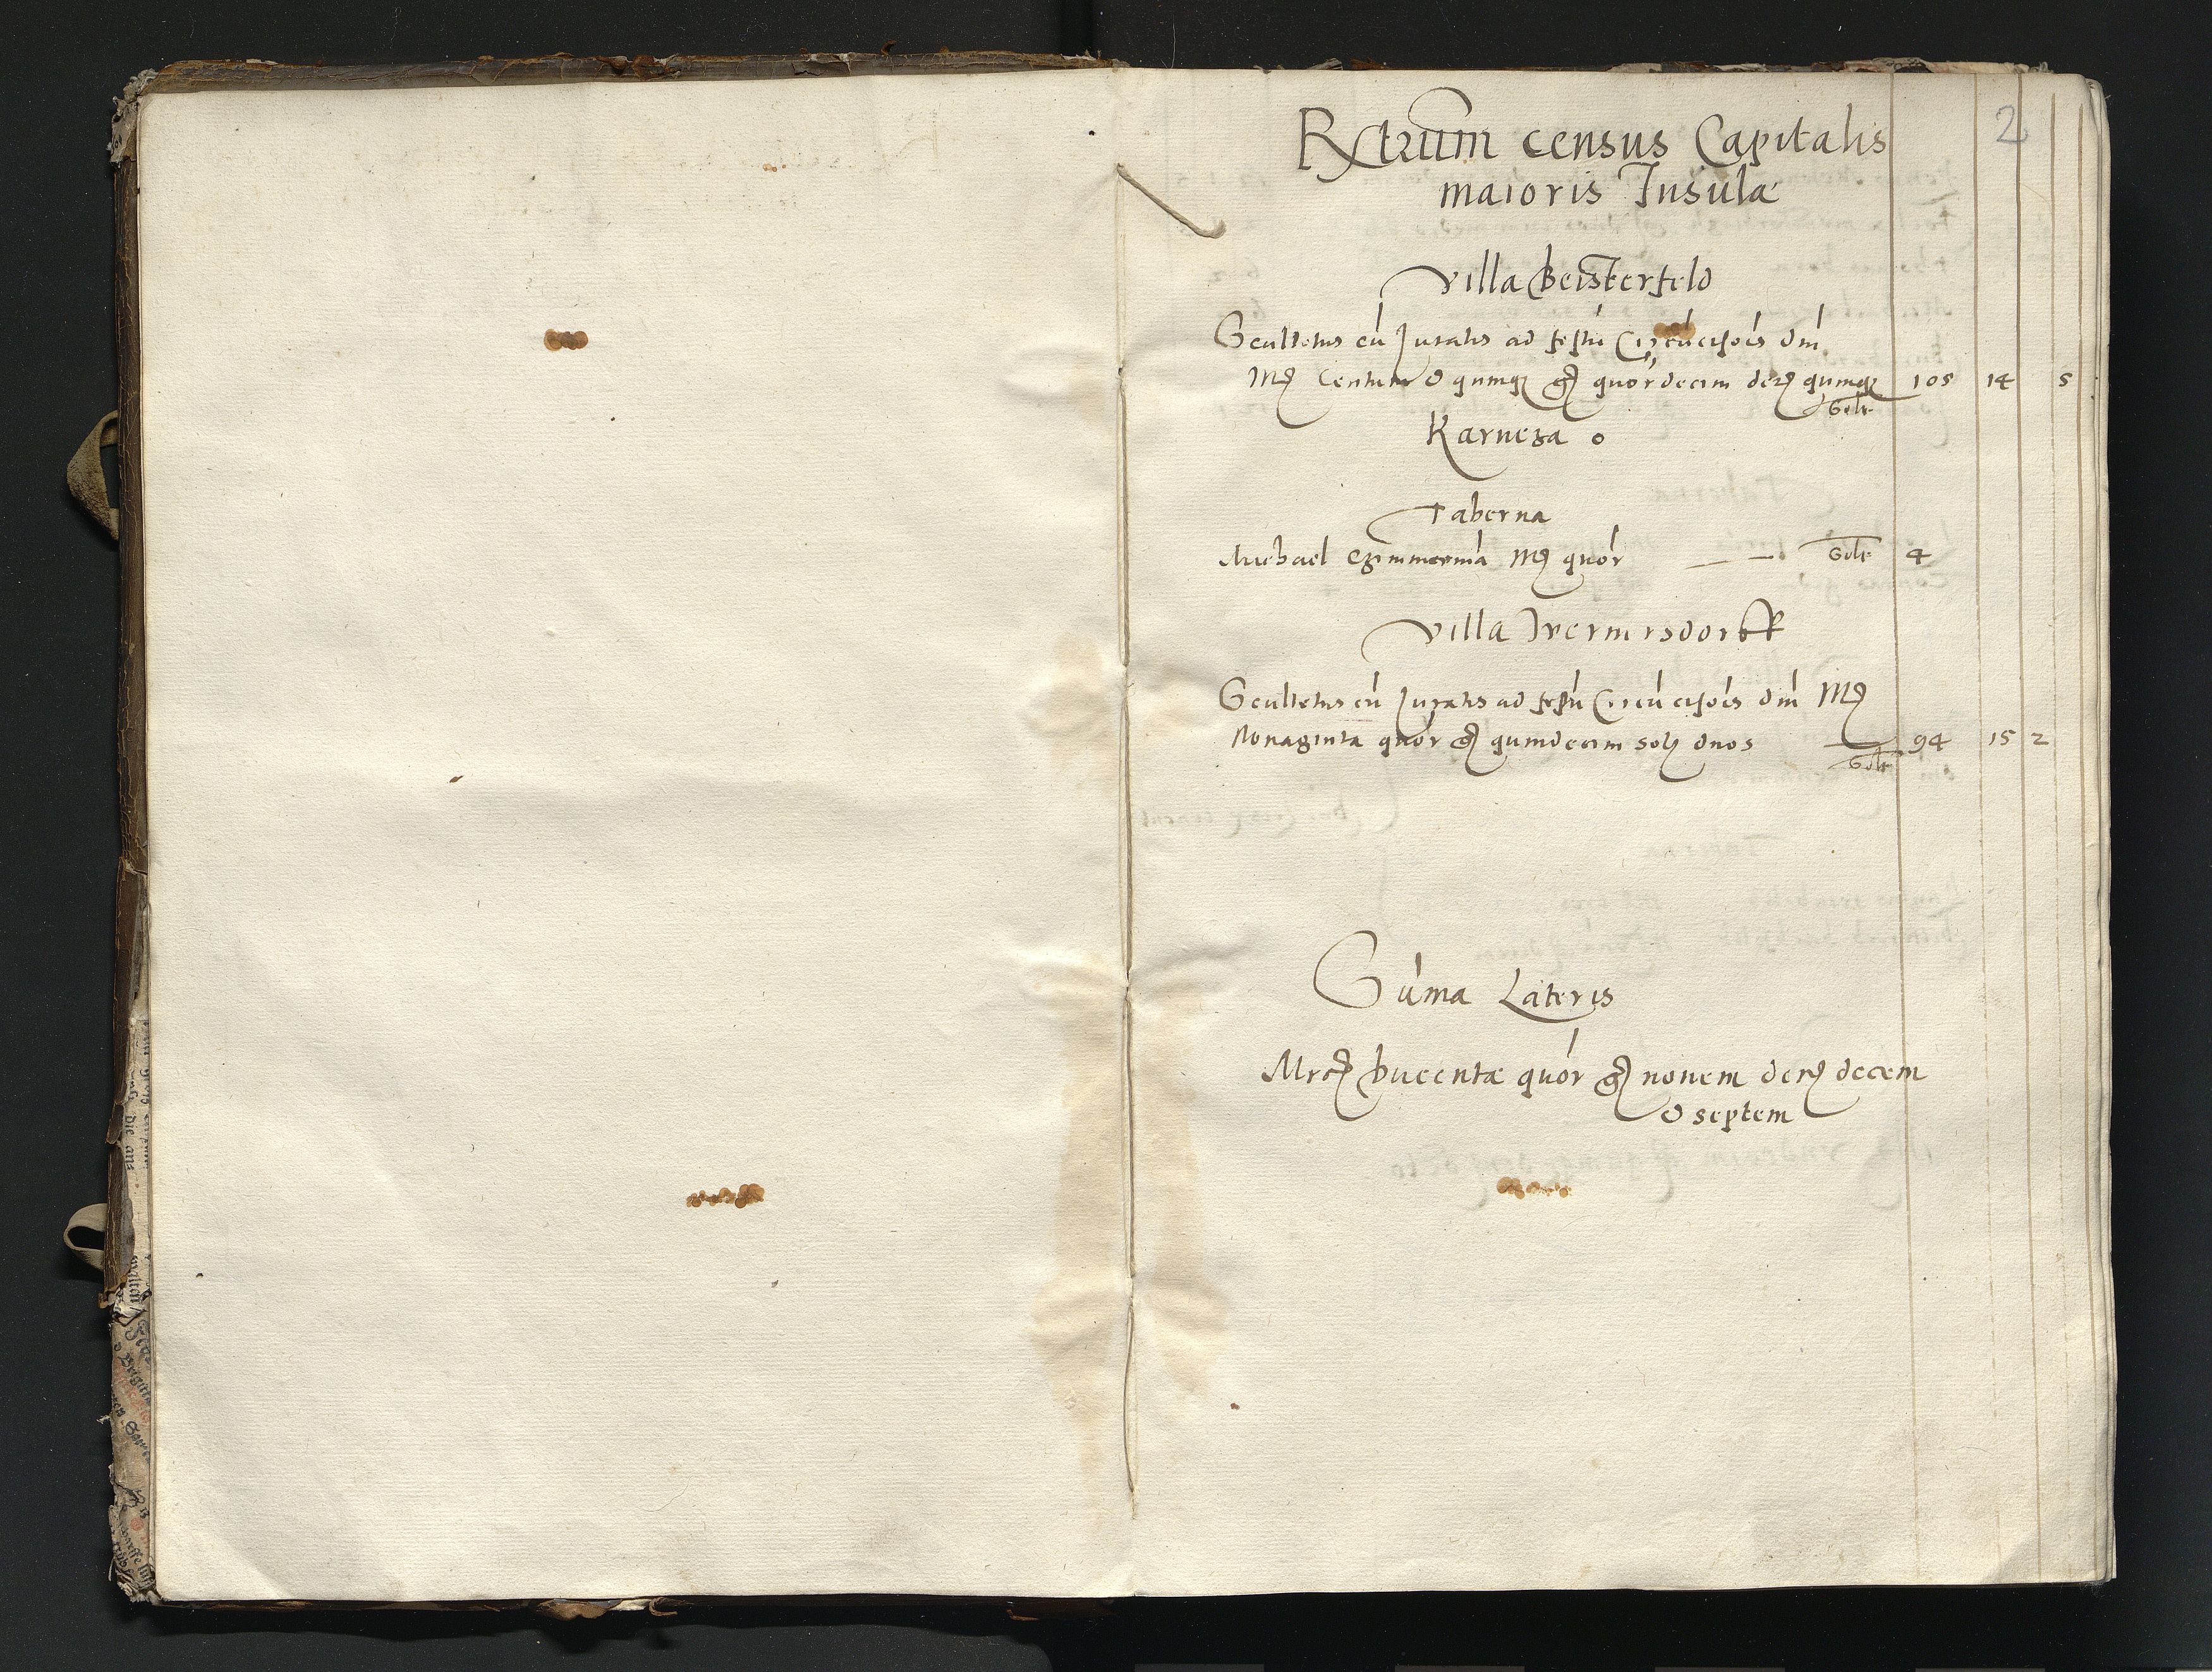 2
Rxtrum census Capitalis
maioris Insulæ
Villa Beisterfeld
Scultetus cu Juratis ad festu Circucisiois dni
Mrc Centum & quinq gr quor decim der quinq 105 14 5
solt
Karnega 0
Taberna
Michael mrc quor — — solt 4
Villa Wernersdorff
Scultetus cu Juratis ad festu Circucisiois dni Mrc
Nonaginta quor gr quindecim sol duos — 94 15 2
solt
Suma Lateris
Mrc ducentæ quor gr nonem der decem
& septem